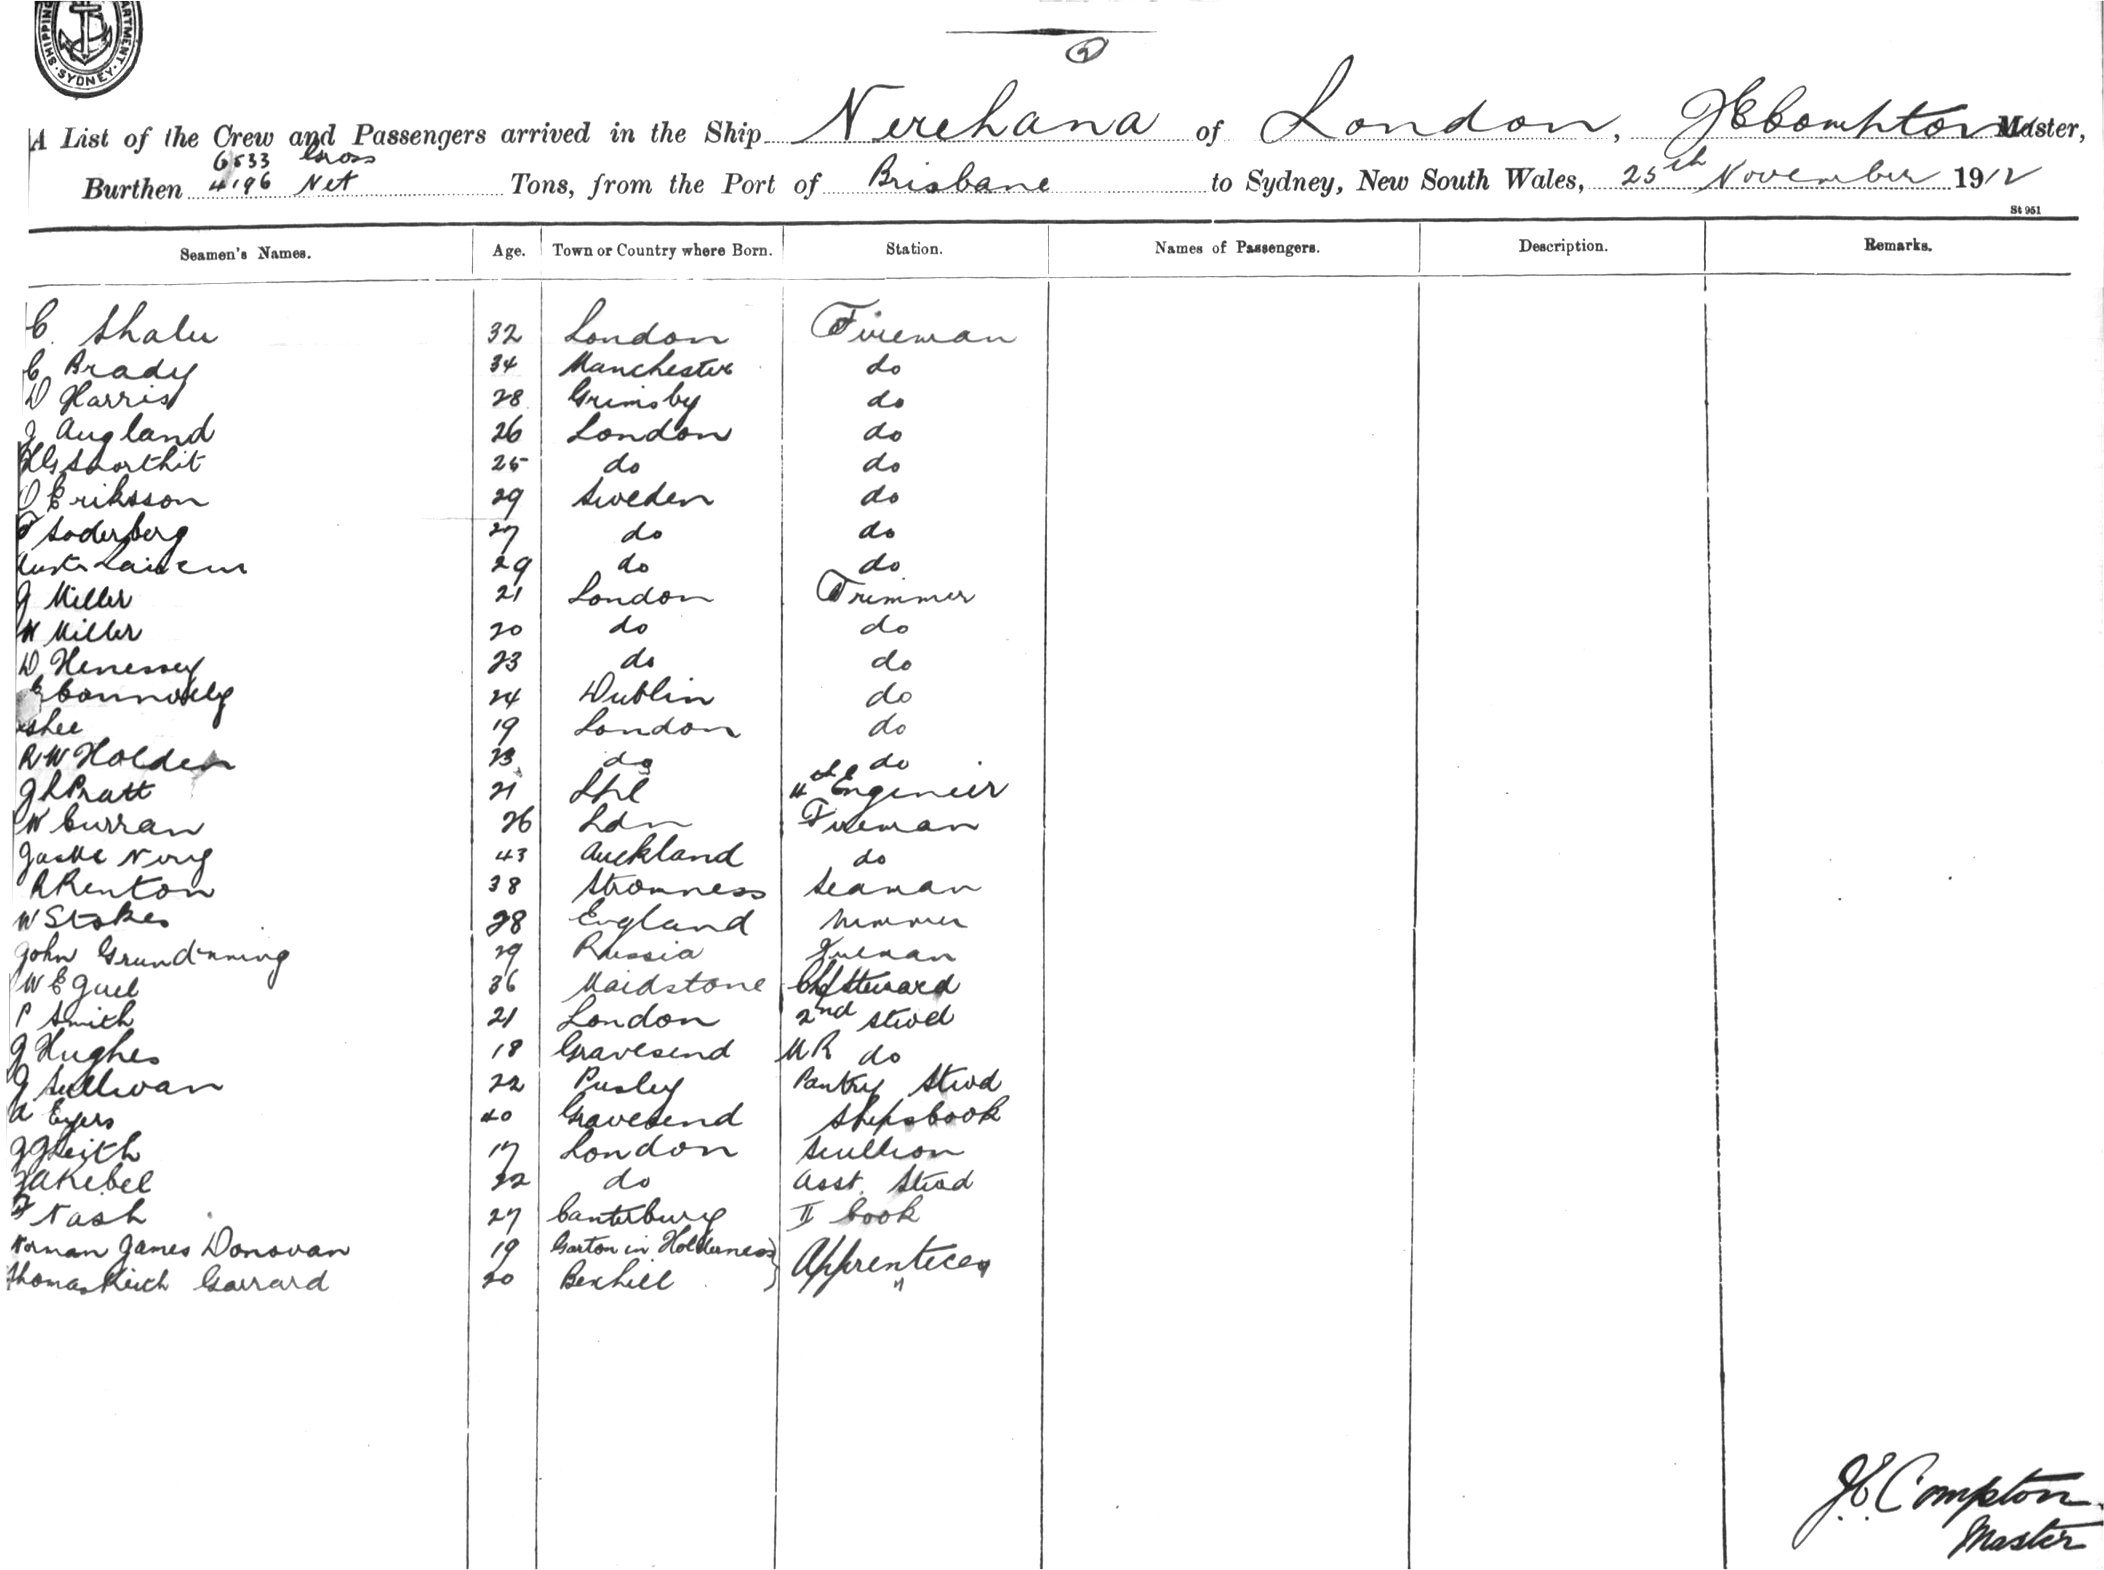 SHIPPING DEPARTMENT SYDNEY
2
A List of the Crew and Passengers arrived in the Ship Nerehana of London, J E Compton Master,
6533 Gross
Burthen 4196 Net Tons, from the Port of Brisbane to Sydney, New South Wales, 25th November 1912
St 951
Seamen's Names. Age. Town or Country where Born. Station. Names of Passengers. Description. Remarks.
C. 32 London Fireman
C Brady 34 Manchester do
D Harris 28 Grimsby do
J Augland 26 London do
25 do do
O Eriksson 29 Sweden do
Soderberg 27 do do
29 do do
J Miller 21 London Trimmer
W Miller 20 do do
D Henessey 23 do do
E Connolly 24 Dublin do
19 London do
R W Holden 23 do do
J L Pratt 21 Lpl 4th Engineer
W Curran 26 Ldn Fireman
43 Auckland do
R Renton 38 Stromness Seaman
W Stokes 28 England Trimmer
John 29 Russia Fireman
W E 36 Maidstone Chf Steward
P Smith 21 London 2nd Stwd
J Hughes 18 Gravesend M R do
J Sullivan 22 Pantry Stwd
A Eyers 40 Gravesend Ships Cook
J Keith 17 London Scullion
22 do Asst. Stwd
F Nash 27 Canterbury II Cook
Norman James Donovan 19 Garton in Holderness Apprentices
Thomas Keith Garrard 20 Bexhill "
J E Compton
Master